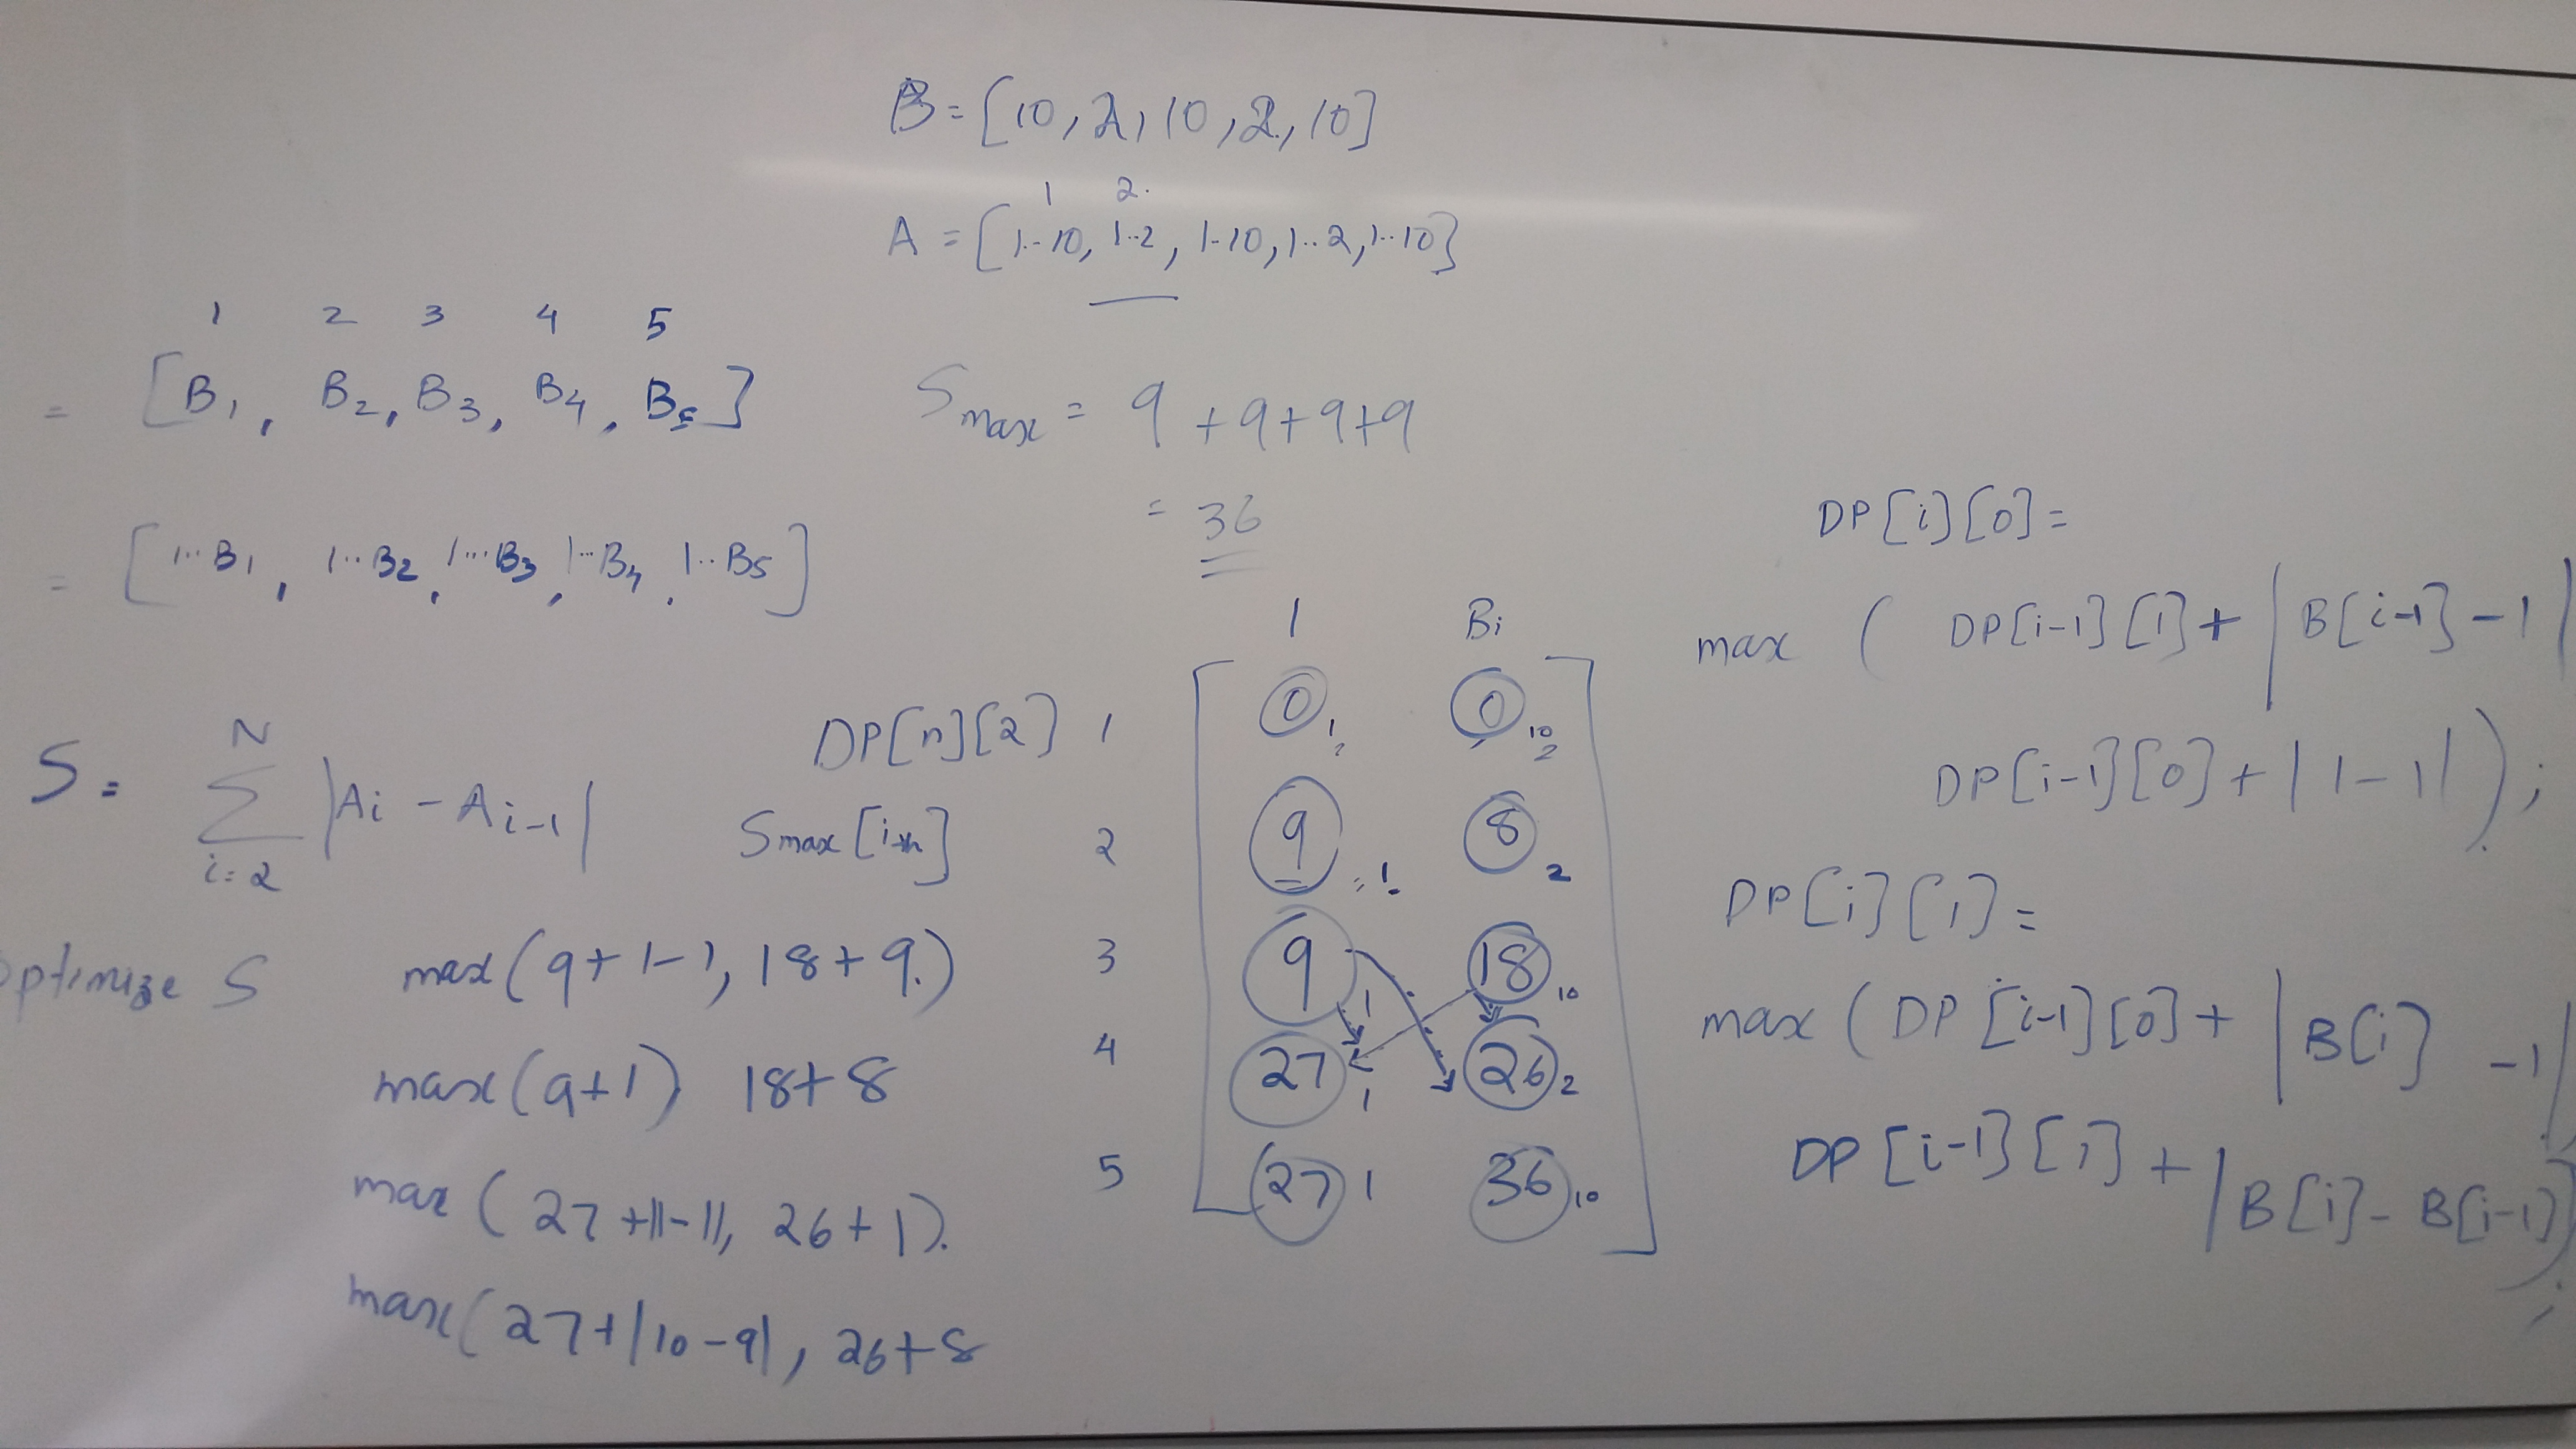 B = [10, 2, 10, 2, 10]
1 2.
A = [1..10, 1..2, 1-10, 1..2, 1..10]
1 2 3 4 5
= [B1, B2, B3, B4, B5]
Smax = 9 + 9 + 9 + 9
= 36
= [1...B1, 1..B2, 1...B3, 1...B4, 1..B5]
S = N Σ i=2 |Ai - Ai-1|
optimize S
DP[n][2]
Smax
max(9+1-1, 18+9.)
max(9+1) 18+8
max(27+|1-1|, 26+1).
max(27+|10-9|, 26+8
1 Bi
1 0 1 0 10 2
2 9 =1. 8 2
3 9 1 18 10
4 27 1 26 2
5 27 1 36 10
DP[i][0] =
max ( DP[i-1][1] + |B[i-1] - 1|
DP[i-1][0] + |1-1|);
DP[i][1] =
max (DP[i-1][0] + |B[i] - 1|
DP[i-1][1] + |B[i] - B[i-1]);